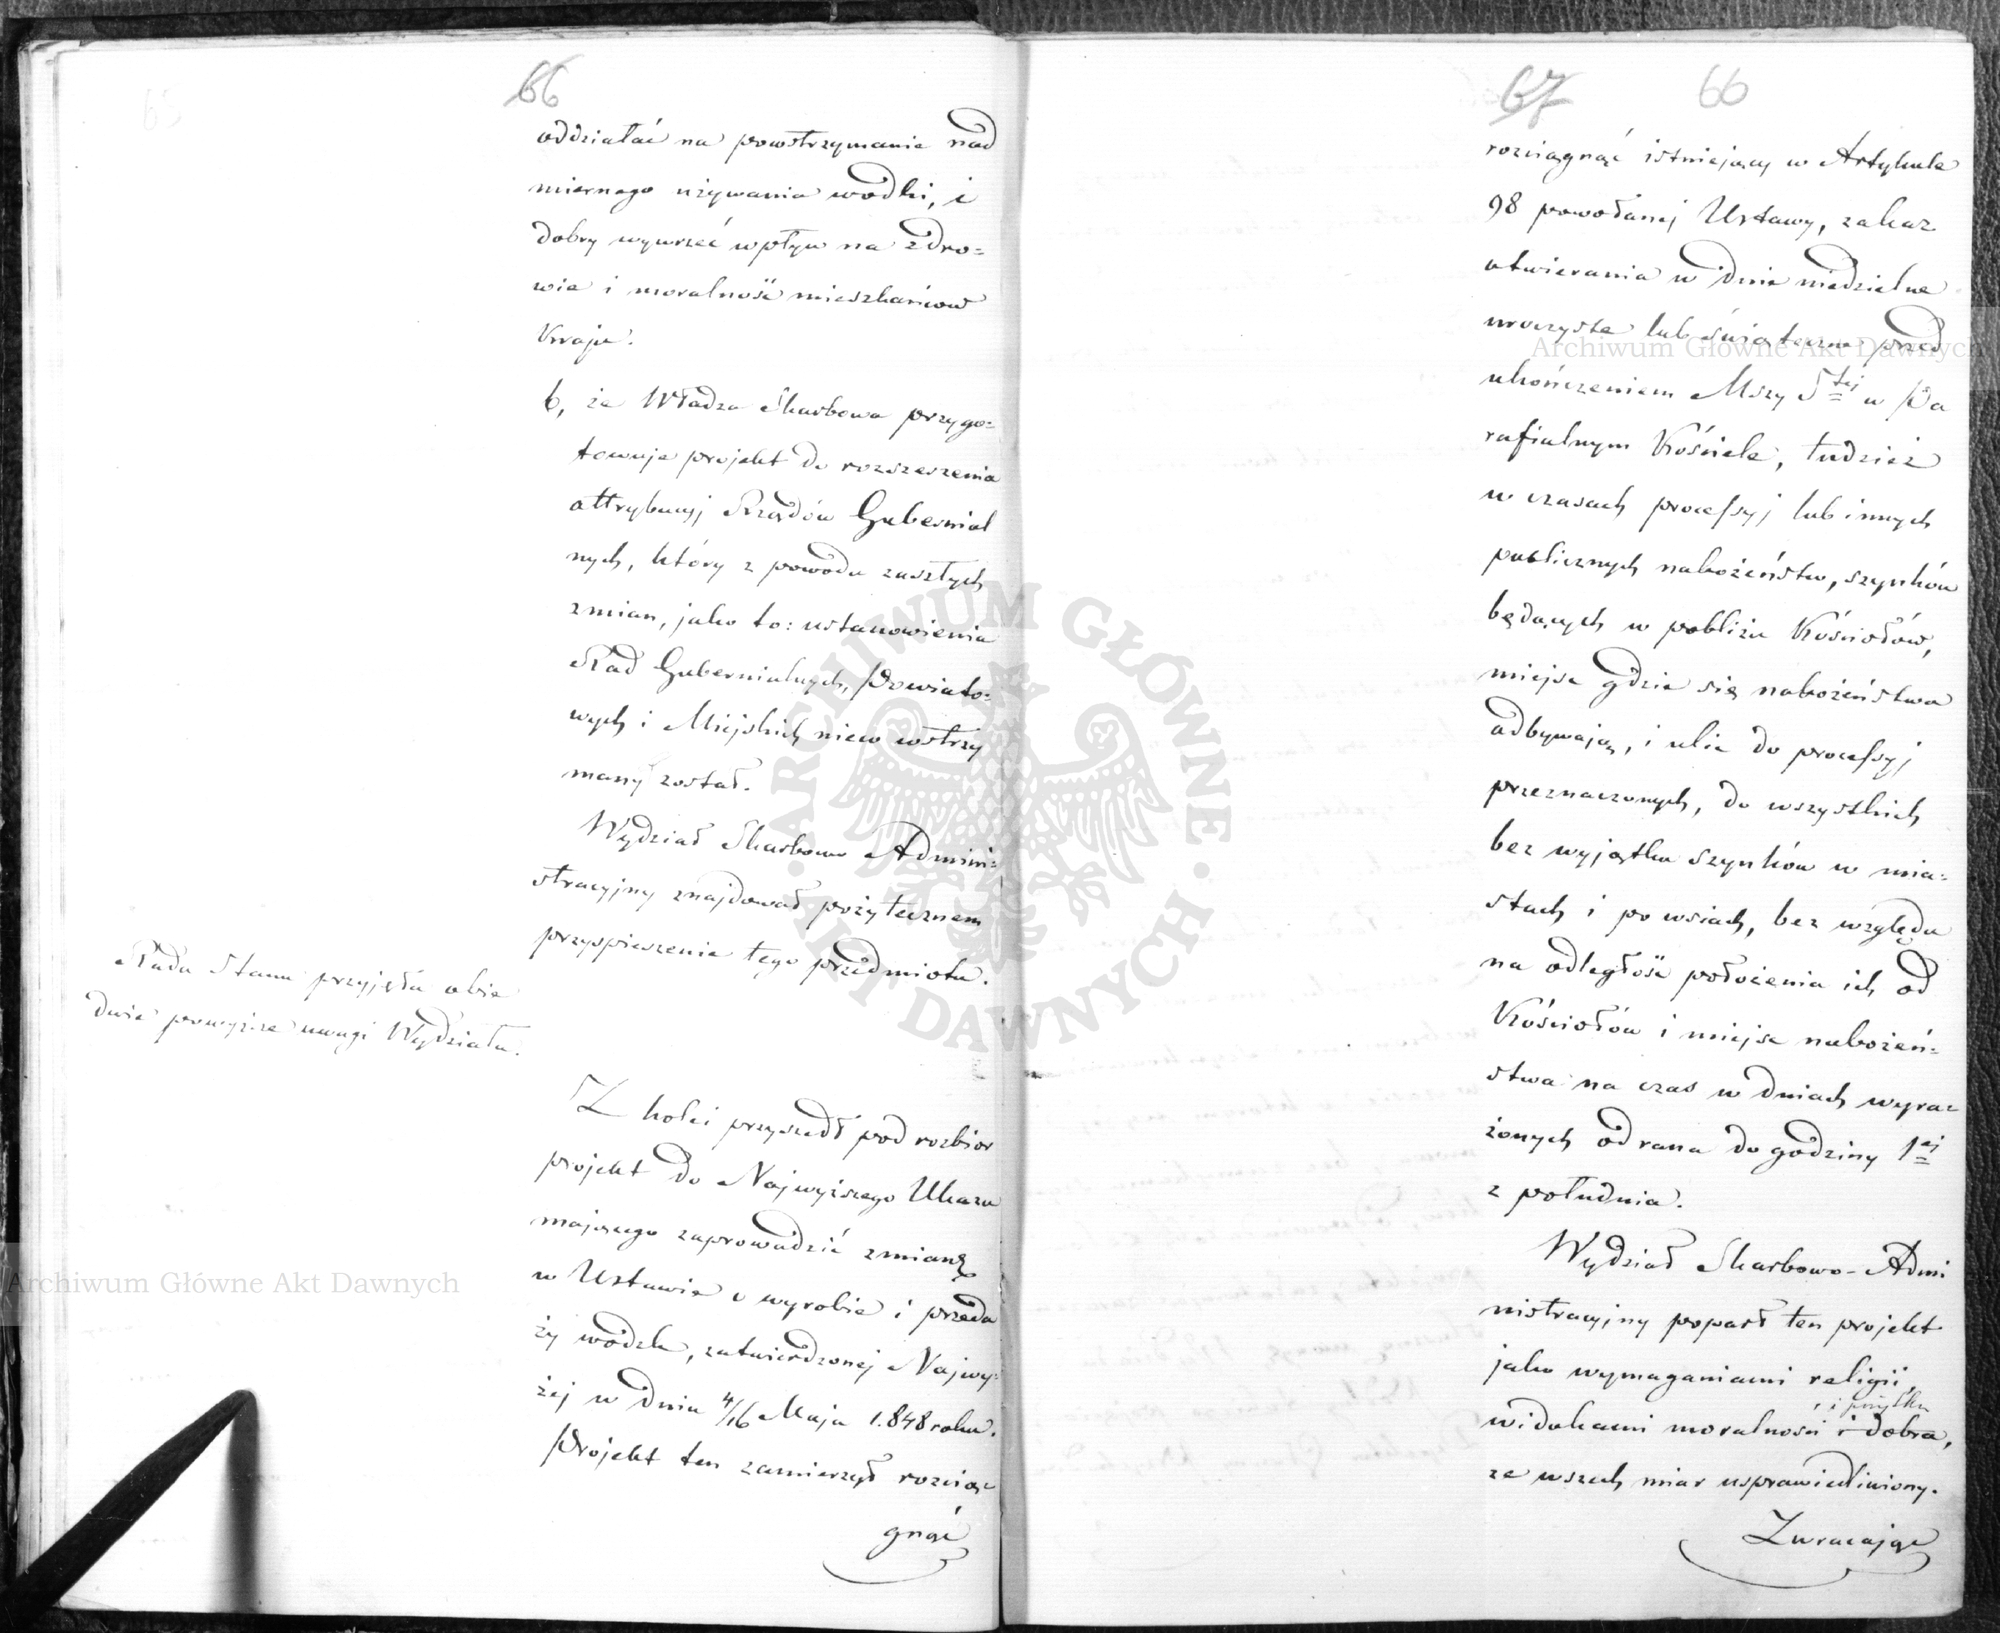 66
oddziałać na powstrzymanie nad
miernego używania wódki, i
dobry wywrzeć wpływ na zdro=
wie i moralność mieszkańców
Kraju.
6, że Władza Skarbowa przygo=
towuje projekt do rozszerzenia
attrybucyj Rządów Gubernial
nych, który z powodu zaszłych
zmian, jako to: ustanowienia
Rad Gubernialnych, Powiato=
wych i Miejskich nieco wstrzy
many został.
Wydział Skarbowo Admini=
stracyjny znajdował pożytecznem
przyspieszenie tego przedmiotu.
Rada Stanu przyjęła obie
dwie powyższe uwagi Wydziału.
Z kolei przyszedł pod rozbior
projekt do Najwyższego Ukazu
mającego zaprowadzić zmianę
w Ustawie o wyrobie i przeda
ży wódek, zatwierdzonej Najwy=
żej w dniu 4/16 Maja 1.848 roku.
Projekt ten zamierzył rozcią=
gnąć
67 66
rozciągnąć istniejący w Artykule
98 powołanej Ustawy, zakaz
otwierania w dnie niedzielne
uroczyste lub świąteczne przed
ukończeniem Mszy Stej w Pa
rafialnym Kościele, tudzież
w czasach processyj lub innych
publicznych nabożeństw, szynków
będących w pobliżu Kościołów,
miejsc gdzie się nabożeństwa
odbywają, i ulic do processyj
przeznaczonych, do wszystkich
bez wyjątku szynków w mia=
stach i po wsiach, bez względu
na odległość położenia ich od
Kościołów i miejsc nabożeń=
stwa na czas w dniach wyra=
żonych od rana do godziny 1ej
z południa.
Wydział Skarbowo-Admi
nistracyjny poparł ten projekt
jako wymaganiami religii,
i pożytku
widokami moralności i dobra,
ze wszech miar usprawiedliwiony.
Zwracając
Archiwum Główne Akt Dawnych
Archiwum Główne Akt Dawnych
ARCHIWUM GŁÓWNE AKT DAWNYCH